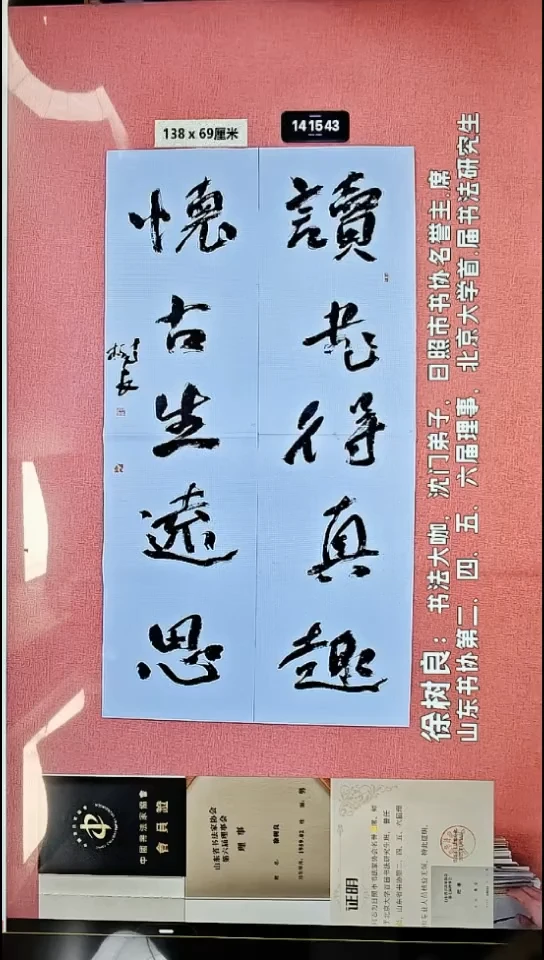 138 x 69厘米
14 15 43
讀老得真趣
懷古生遠思
樹良
徐树良：书法大咖．沈门弟子．日照市书协名誉主席
山东书协第二．四．五．六届理事．北京大学首.届书法研究生
中國書法家協會
會員證
山东省书法家协会
第六届理事会
理事
徐树良
证明